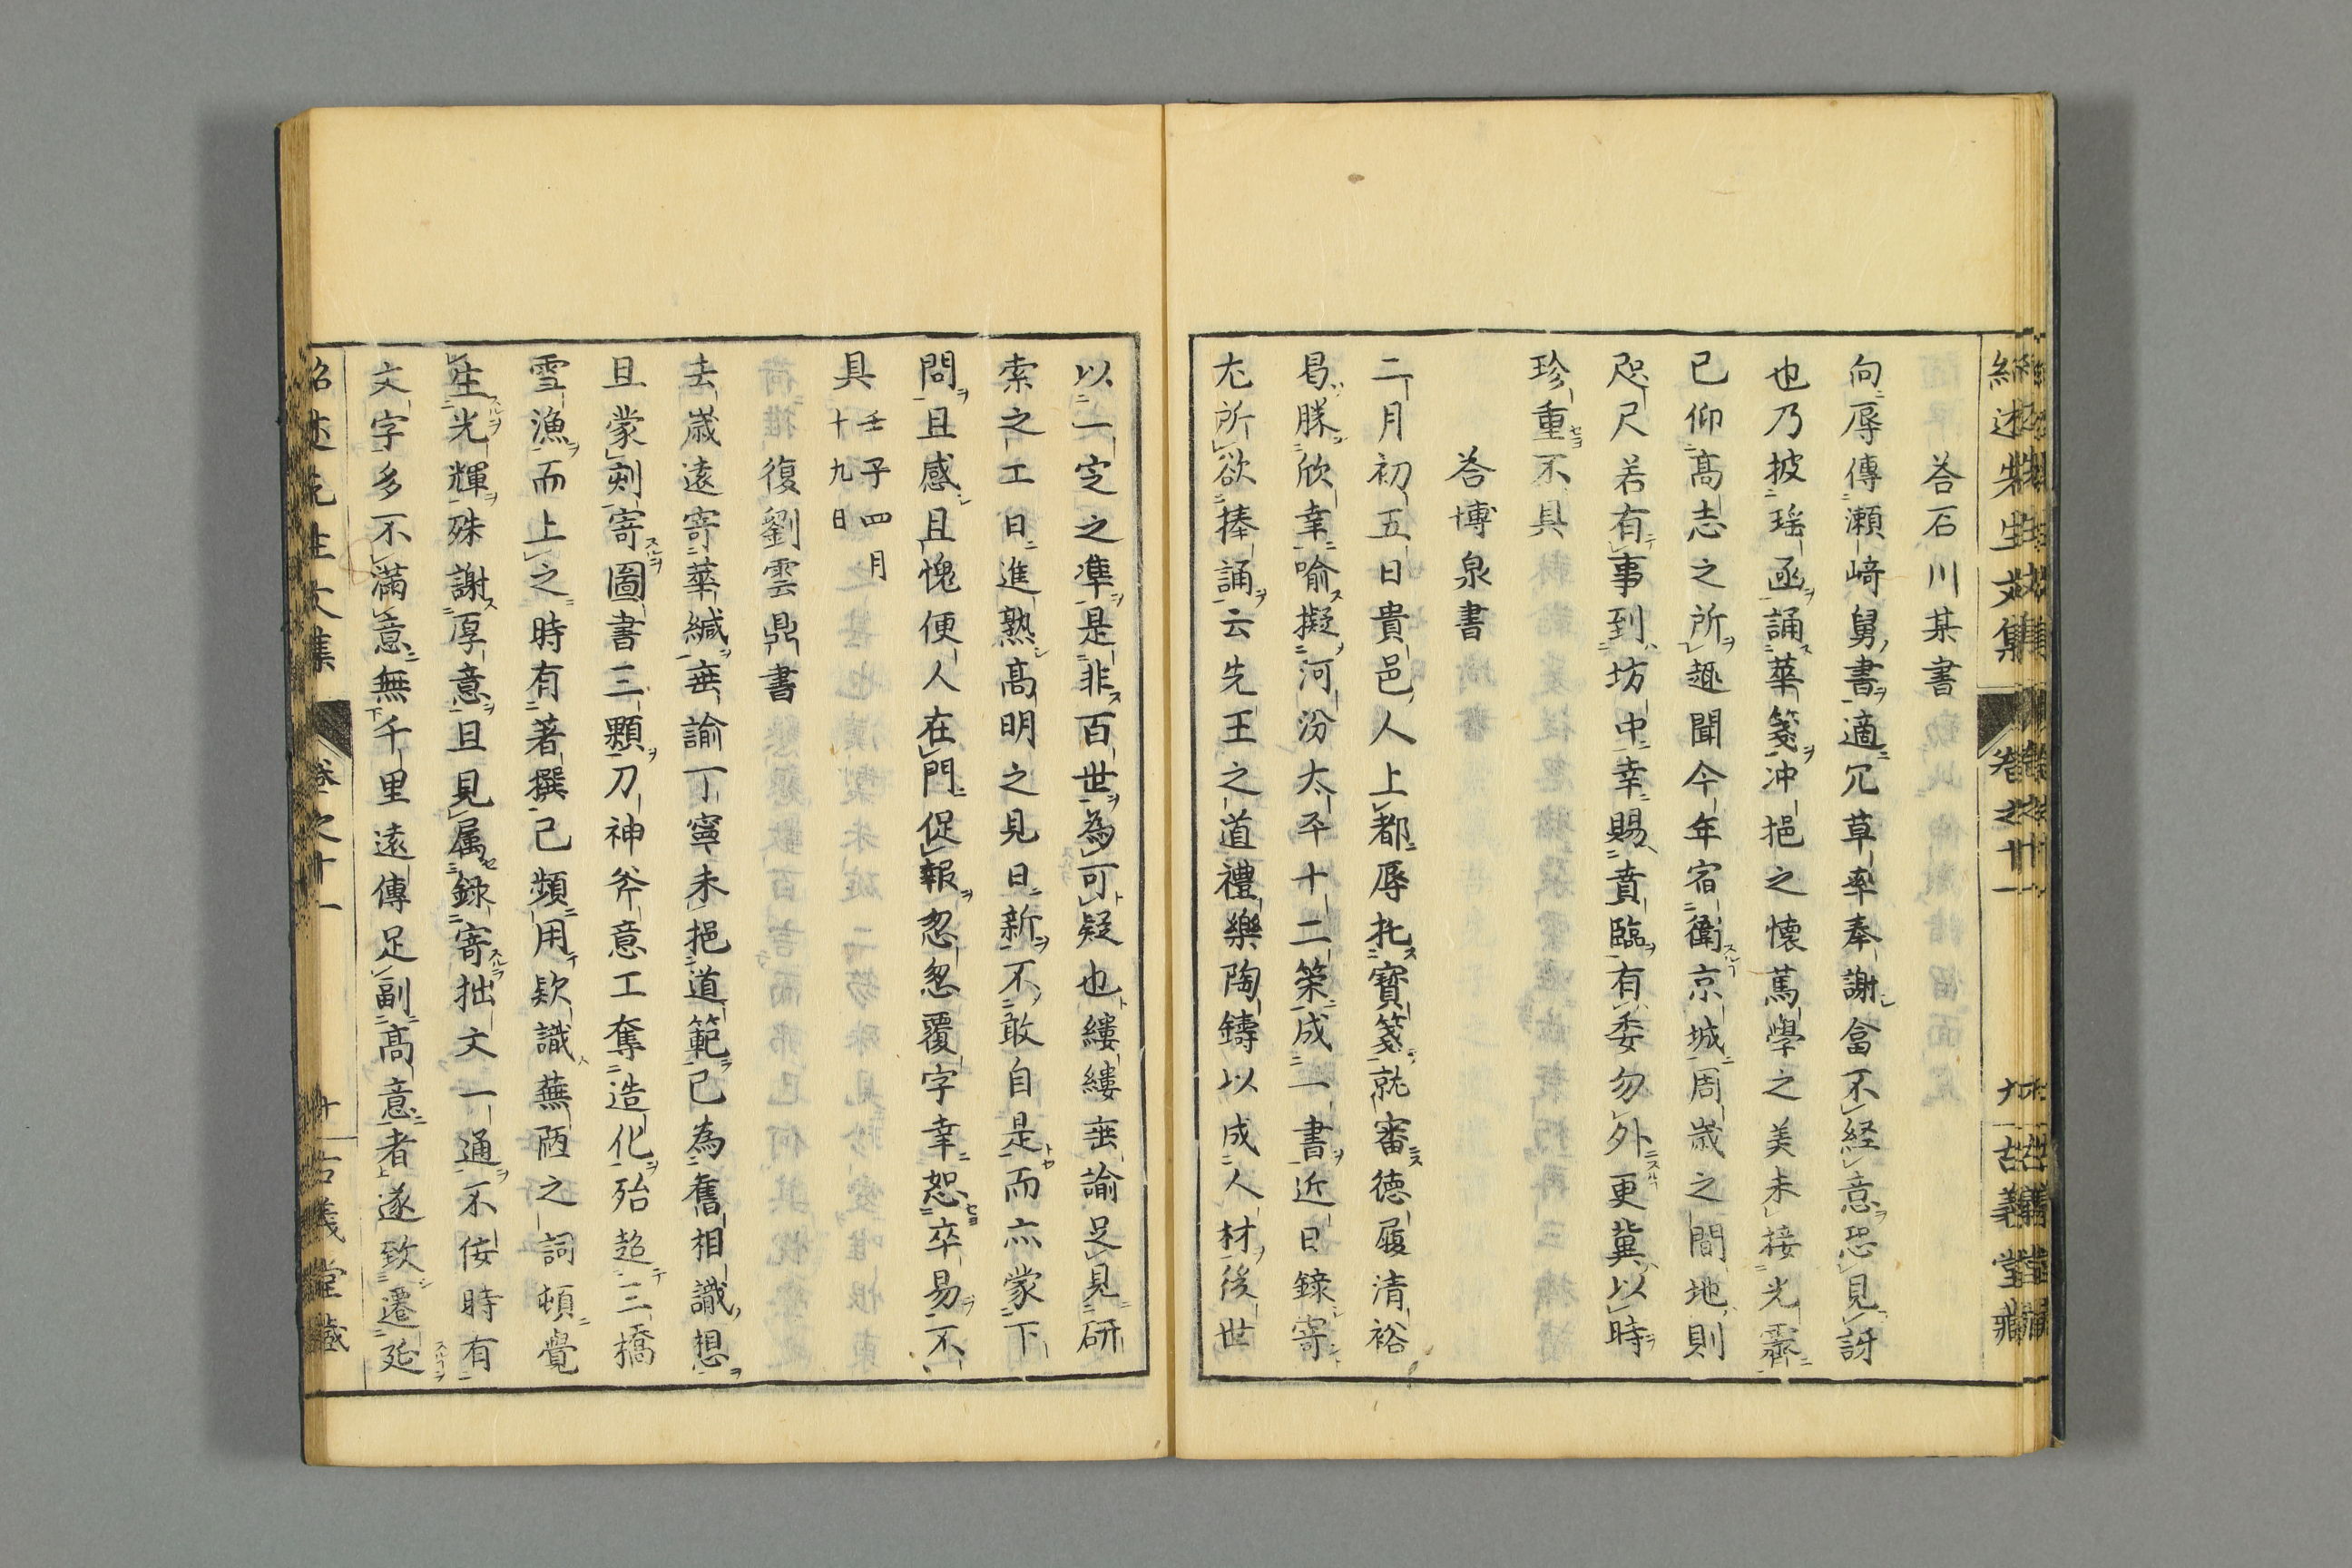 紹述先生文集　卷之十一　九　古義堂藏
荅石川某書
向辱傳瀬﨑舅書適冗草率奉謝畣不経意恐見訝
也乃披瑶凾誦華箋冲挹之懐篤學之美未接光霽
已仰髙志之所趣聞今年宿衛京城周歳之間地則
咫尺若有事到坊中幸賜賁臨有委勿外更冀以時
珍重不具
荅博泉書
二月初五日貴邑人上都辱托寳箋就審德履清裕
曷勝欣幸喻擬河汾太平十二策成一書近日録寄
尤所欲捧誦云先王之道禮樂陶鑄以成人材後世
以一定之凖是非百世為可疑也縷縷垂諭足見研
索之工日進熟髙明之見日新不敢自是而亦蒙下
問且感且愧便人在門促報忽忽覆字幸恕卒易不
具壬子四月十九日
復劉雲鼎書
去歳遠寄華緘垂諭丁寧未挹道範已為舊相識想
且蒙刻寄圖書三顆刀神斧意工奪造化殆超三橋
雪漁而上之時有著撰已頻用欵識蕪陋之詞頓覺
生光輝殊謝厚意且見属録寄拙文一通不佞時有
文字多不滿意無千里遠傳足副髙意者遂致遷延
紹述先生文集　卷之十一　十　古義堂藏